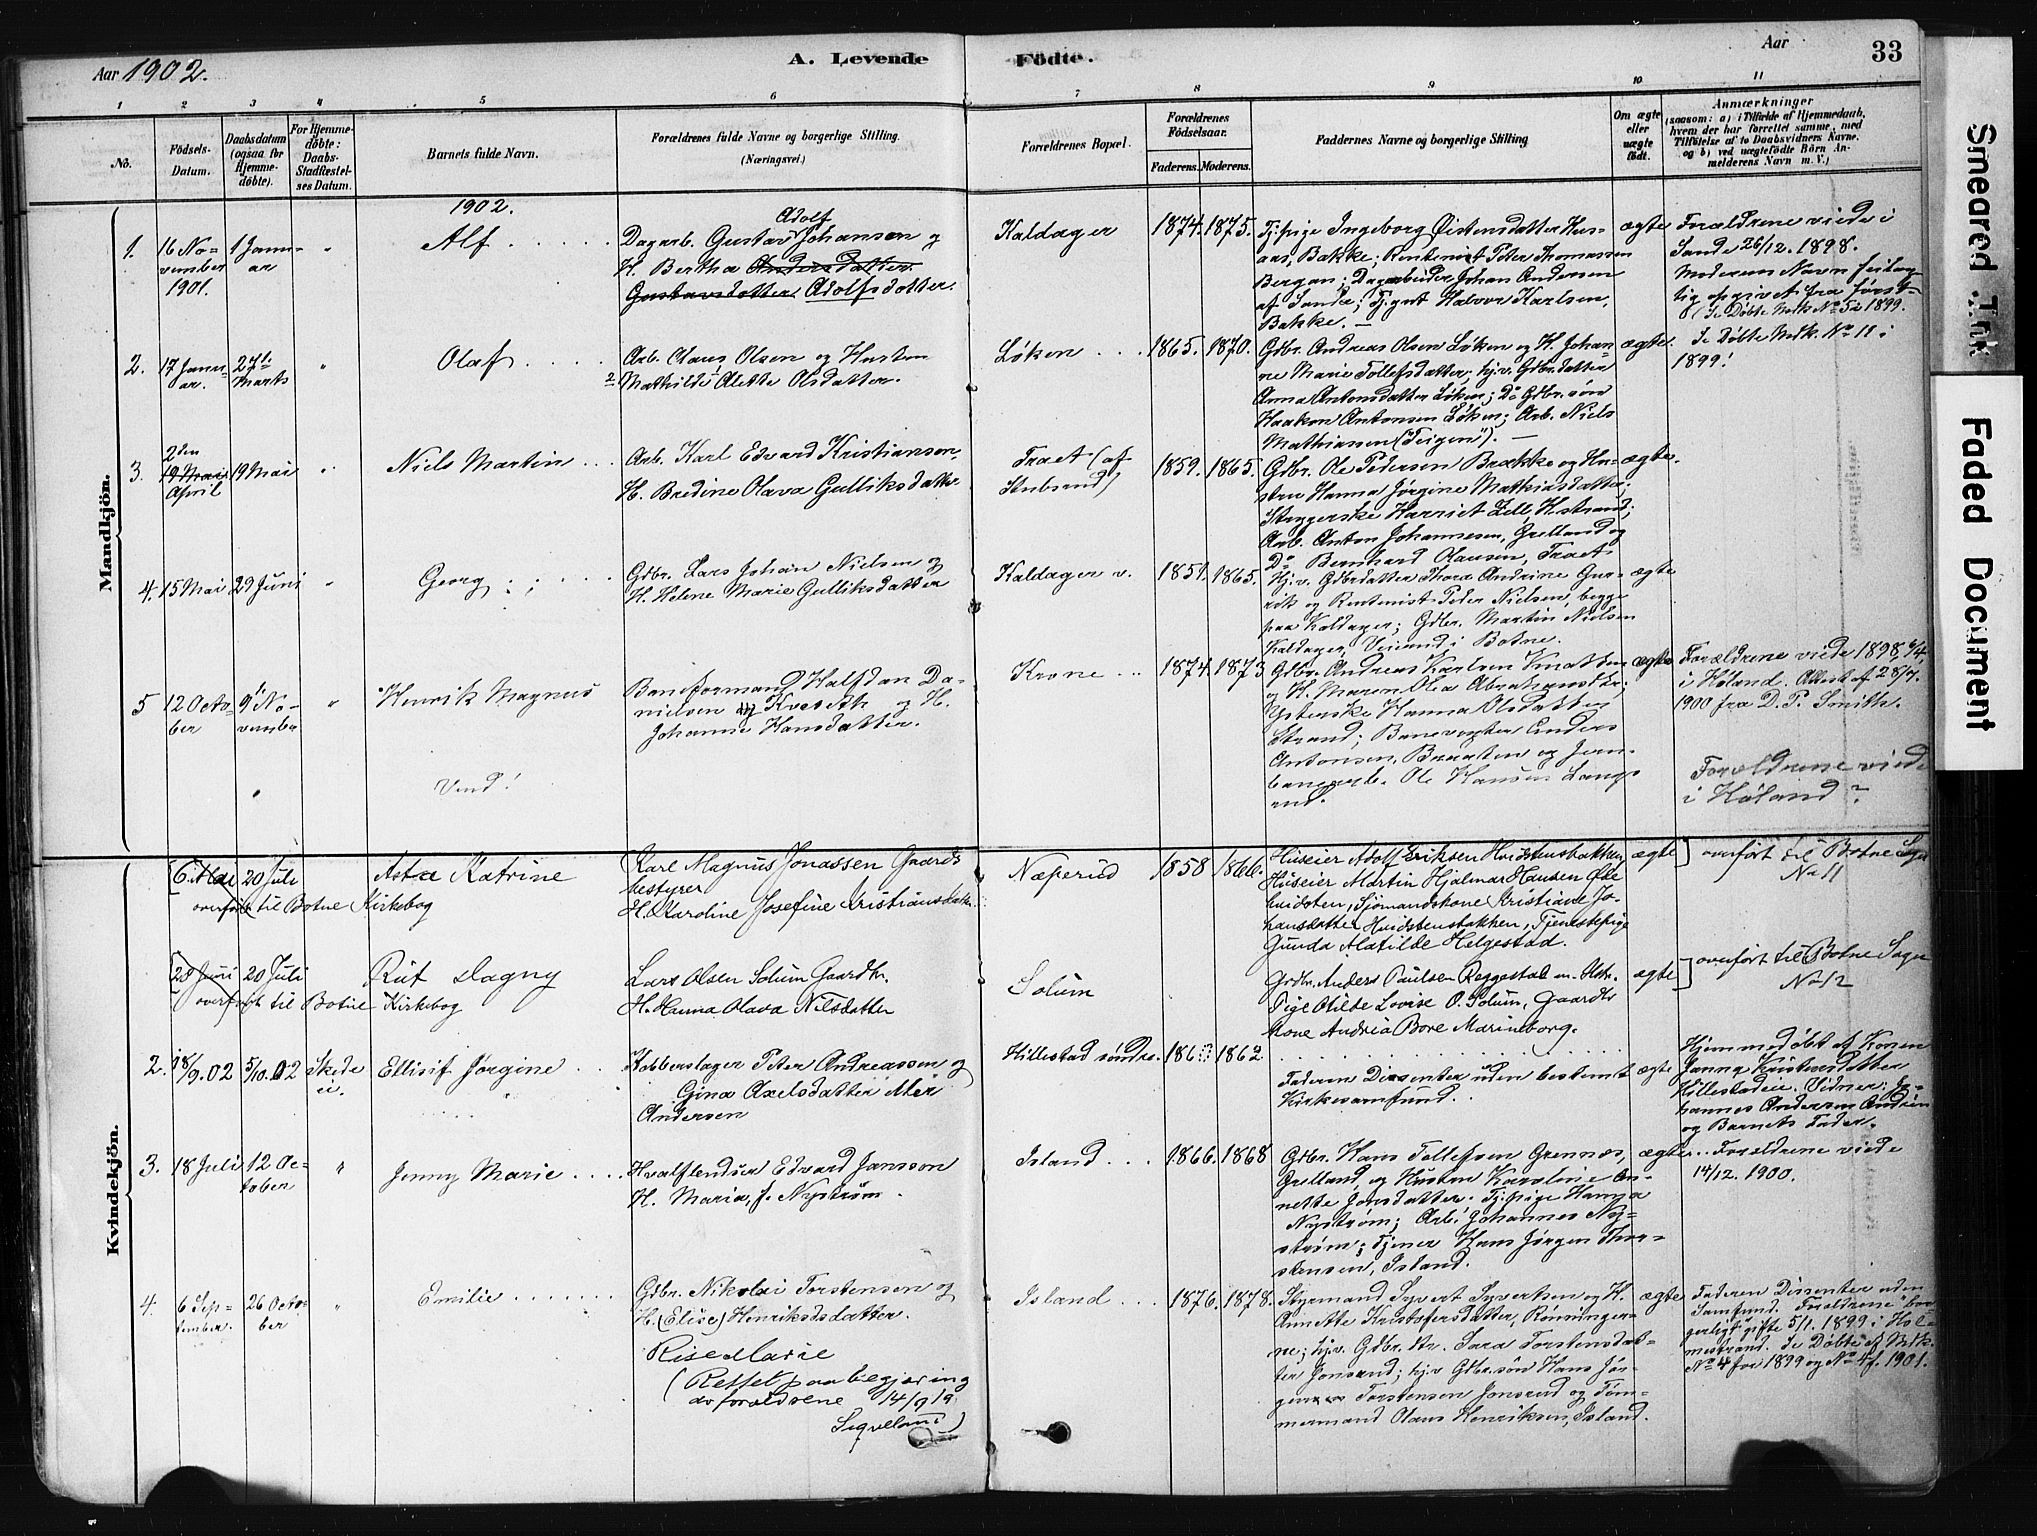 Aar 1902.
A. Levende Födte.
Aar
33
1 2 3 4 5 6 7 8 9 10 11
No.
Födsels-
Datum.
Daabsdatum
(ogsaa for
Hjemme-
døbte).
For Hjemme-
døbte:
Daabs-
Stadfæstel-
ses Datum.
Barnets fulde Navn.
Forældrenes fulde Navne og borgerlige Stilling.
(Næringsvei.)
Forældrenes Bopæl.
Forældrenes
Fødselsaar.
Faderens. Moderens.
Faddernes Navne og borgerlige Stilling
Om ægte
eller
uægte
født.
Anmærkninger
(saasom: a) i Tilfælde af Hjemmedaab,
hvem der har forrettet samme, med
Tilføielse af to Daabsvidners Navne.
og b) ved uægtefødte Børn An-
melderens Navn m. V.)
Mandkjön.
1902.
1.
16 No-
vember
1901.
1 Janu-
ar
"
Alf
Adolf
Dagarb. Gustav Johansen og
H. Bertha Andersdatter
Gustavsdatter Adolfsdatter.
Kaldager
1874. 1875.
Tj.pige Ingeborg Øistensdatter Hus-
aas, Bakke; Rentenist Peter Thomassen
Bergan; Dagarbeider Johan Andersen
af Sande; Tjgut Halvor Karlsen,
Bakke. —
ægte
Forældrene viede i
Sande 26/12. 1898.
Moderens Navn feilag-
tig opgivet fra først
(Se Døbte Mtk No 5 i 1899.
2.
17 Janu-
ar.
27de
Marts
"
Olaf
Arb. Olaus Olsen og Hustru
Mathilde Alette Olsdatter.
Løken
1865. 1870.
Gdbr. Andreas Olsen Løken og H. Johan-
ne Marie Tollefsdatter; hjv. Gdbr.datter
Anna Antonsdatter Løken; Do Gdbr. søn
Haakon Antonsen Løken; Arb. Niels
Mathiassen ("Teigen"). —
ægte.
Se Døbte Mtk. No 11 i
1899!
3.
2den
19 Mai
April
19 Mai
"
Niels Martin
Arb. Karl Edvard Kristiansen,
H. Bredine Olava Gulliksdatter
Traet (af
Stubsrud)
1859. 1865.
Gdbr. Ole Pedersen Brække og Hu-
stru Hanna Jørgine Mathiasdatter;
Stryggerske Harriet Lelli H.strand;
Arb. Anton Johannesen, Grelland og
Do Bernhard Olausen, Traet
ægte.
4.
15 Mai
29 Juni
"
Georg
Gdbr. Lars Johan Nielsen og
H. Helene Marie Gulliksdatter
Kaldager v.
1851. 1865.
Hj.v. Gdbrdatter Thora Andrine Gur-
rik og Rentenist Peder Nielsen, begge
paa Kaldager; Gdbr. Martin Nielsen
Kaldager, Veierud i Botne.
ægte
5
12 Octo-
ber
9de No-
vember
"
Henrik Magnus
Baneformand Halfdan Da-
nielsen Kveseth og H.
Johanne Hansdatter.
Krone
1874. 1873
Gdbr. Andreas Karlsen Knatten
og H. Maren Olea Abrahamsdtr.;
Ysterske Hanna Olsdatter
Strand; Banevogter Anders
Antonsen, Braaten og Jern-
banearb. Ole Hansen Langs
rud.
ægte
Forældrene viede 1898, 6/4,
i Høland. Attest af 28/7.
1900 fra D. P. Smith.
Vend!
Forældrene viede
i Høland?
Kvindekjön.
6. Mai
20 Juli
Asta Katrine
overført til Botne Kirkebog
Karl Magnus Jonassen Gaards
bestyrer
H. Karoline Josefine Kristiansdatter
Næperud
1858 1866.
Huseier Adolf Eriksen Hvidstensbakken
Huseier Martin Hjalmar Hansen Øde
hvidsten, Sjømandskone Kristiane Jo-
hansdatter Hvidstensbakken, Tjenestepige
Gunda Matilde Helgestad.
ægte
overført til Botne Sogn
No 11
28 Juni
20 Juli
Rut Dagny
overført til Botne Kirkebog
Lars Olsen Solum Gaardbr.
H. Hanna Olava Nilsdatter
Solum
Grdbr. Anders Paulsen Reggestad m. Hstr.
Pige Hilde Lovise O. Solum, Gaardbr
Kone Andrea Bore Marienborg.
ægte
overført til Botne Sogn
No 12
2.
18/9.02
5/10.02
Skede
ii.
Ellisif Jørgine
Kobberslager Peter Andreassen og
Gina Axelsdatter eller
Andersen
Hillestad søndre.
186 1862
Faderen Dissenter uden bestemt
Kirkesamfund.
ægte
Hjemmedøbt af Konen
Janna Kristensdatter
Hillestadeie. Vidner: Jo-
hannes Andersen Andrein
og Barnets Fader.
3.
18 Juli
12 Oc-
tober
"
Jenny Marie
Hvalflendser Edvard Jansson
H. Maria, f. Nyström.
Island
1866. 1868
Gdbr. Hans Tollefsen Grennes,
Grelland, og Hustru Karoline An-
nette Jonsdatter. Tj.pige Hanna
Nyström; Arb. Johannes Ny-
ström; Tjener Hans Jørgen Thor-
stensen, Island.
ægte
Forældrene viede
14/12. 1900.
4.
6 Sep-
tember.
26 Octo-
ber
"
Emilie
Gdbr. Nikolai Torstensen og
H. (Elise) Henriksdatter.
Rise Marie
(Rettet paa begjæring
av forældrene 14/9 19
Island
1876. 1878.
Styrmand Syvert Syvertsen og H.
Annette Kristofersdatter, Rønninger-
ne; hjv. Gdbr. dtr. Sara Torstensdat-
ter Jonsrud; hjv Gdbr.søn Hans Jør-
gen Torstensen Jonsrud og Tøm-
mermand Olaus Henriksen, Island.
ægte
Faderen Dissenter uden
Samfund. Forældrene bor-
gerligt gifte 5/1. 1899 i Hol-
mestrand. Se Døbte af Mtk.
No 4 for 1899 og No 4 f. 1901.
Smeared Ink
Faded Document